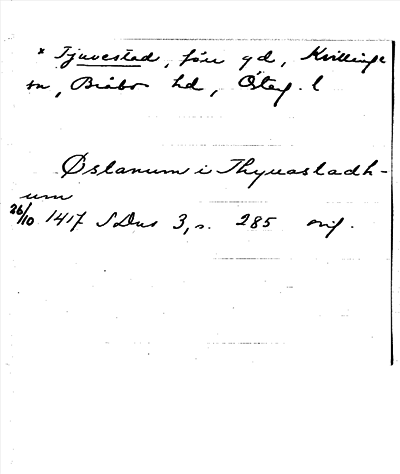 * Tjuvestad, förr gd, Kvillinge
sn, Bråbo hd, Östag. l
Østanum i Thyuastadh-
um
26/10 1417 SDns 3, s. 285 orig.